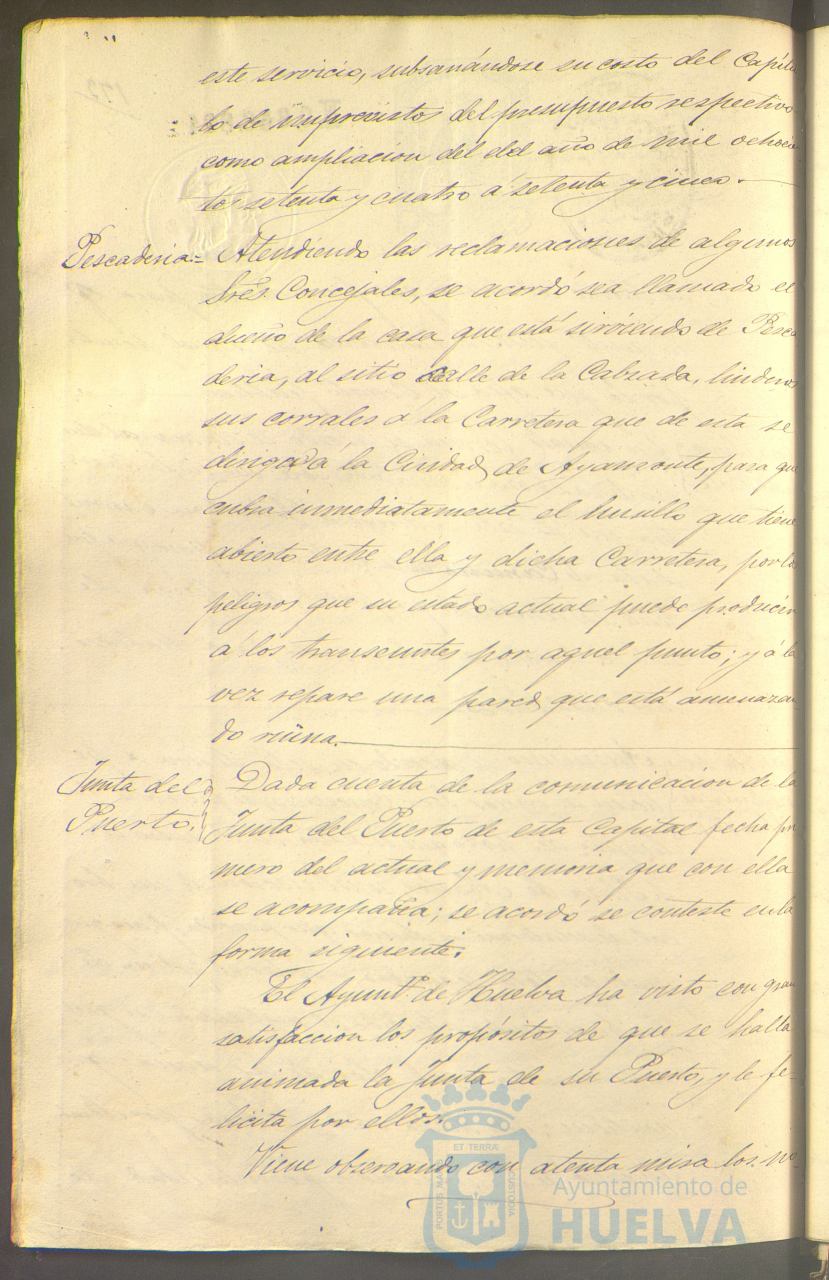 este servicio, subsanándose su costo del Capítu
lo de imprevistos del presupuesto respectivo
como ampliacion del del año de mil ochocien
tos setenta y cuatro á setenta y cinco.
Pescaderia= Atendiendo las reclamaciones de algunos
Sres. Concejales, se acordó sea llamado el
dueño de la casa que está sirviendo de Pesca
deria, al sitio calle de la Calzada, lindero
sus corrales á la Carretera que de esta se
dirige á la Ciudad de Ayamonte, para que
cubra inmediatamente el husillo que tiene
abierto entre ella y dicha Carretera, por los
peligros que su estado actual puede producir
á los transeuntes por aquel punto; y á la
vez repare una pared que está amenazan
do ruina.
Junta del Puerto. Dada cuenta de la comunicacion de la
Junta del Puerto de esta Capital fecha pri
mero del actual y memoria que con ella
se acompaña; se acordó se conteste en la
forma siguiente.
El Ayuntº. de Huelva ha visto con gran
satisfaccion los propósitos de que se halla
animada la Junta de su Puerto, y le fe-
licita por ellos.
Viene observando con atenta mira los
PORTUS MARIS ET TERRA CUSTODIA
Ayuntamiento de
HUELVA